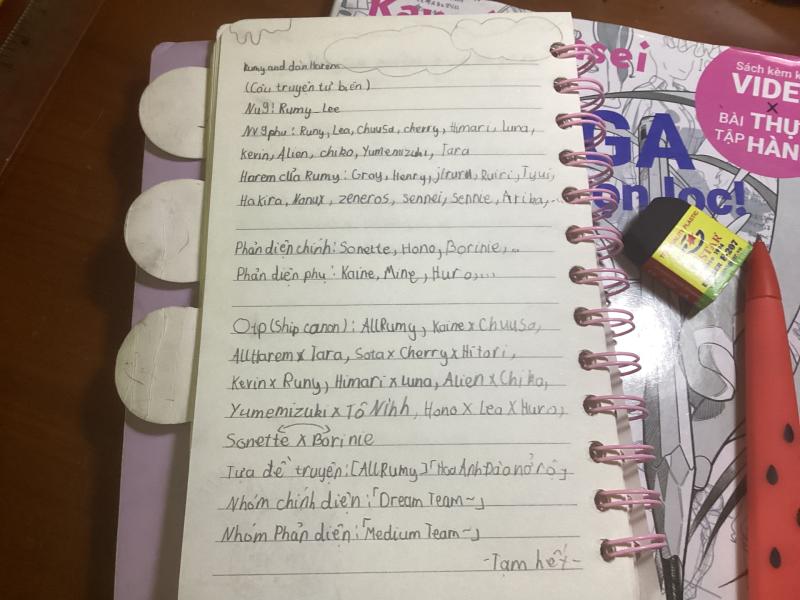 Rumy and dàn Harem
(Câu truyện tự biên)
Nu9: Rumy Lee
Nv9 phụ: Runy, Lea, Chuusa, cherry, Himari, Luna,
Kevin, Alien, chiko, Yumemizuki, Tara
Harem của Rumy: Gray, Henry, Ruiri, Tyui,
Hakira, Nanux, zeneros, sennei, Sennie, Ariba,...
Phản diện chính: Sonette, Hono, Borinie,...
Phản diện phụ: Kaine, Mine, Huro,...
Otp (Ship canon): AllRumy, Kaine x Chuusa,
AllHarem x Tara, Sota x Cherry x Hitori,
Kevin x Runy, Himari x Luna, Alien x Chiko,
Yumemizuki x Tô Ninh, Hono x Lea x Huro,
Sonette x Borinie
Tựa đề truyện: [AllRumy]「Hoa Anh Đào nở rộ」
Nhóm chính diện:「Dream Team~」
Nhóm Phản diện:「Medium Team~」
-Tạm hết-
Sách kèm
VIDE
x
BÀI THỰ
TẬP HÀN
sei
GA
n lọc!
STAR